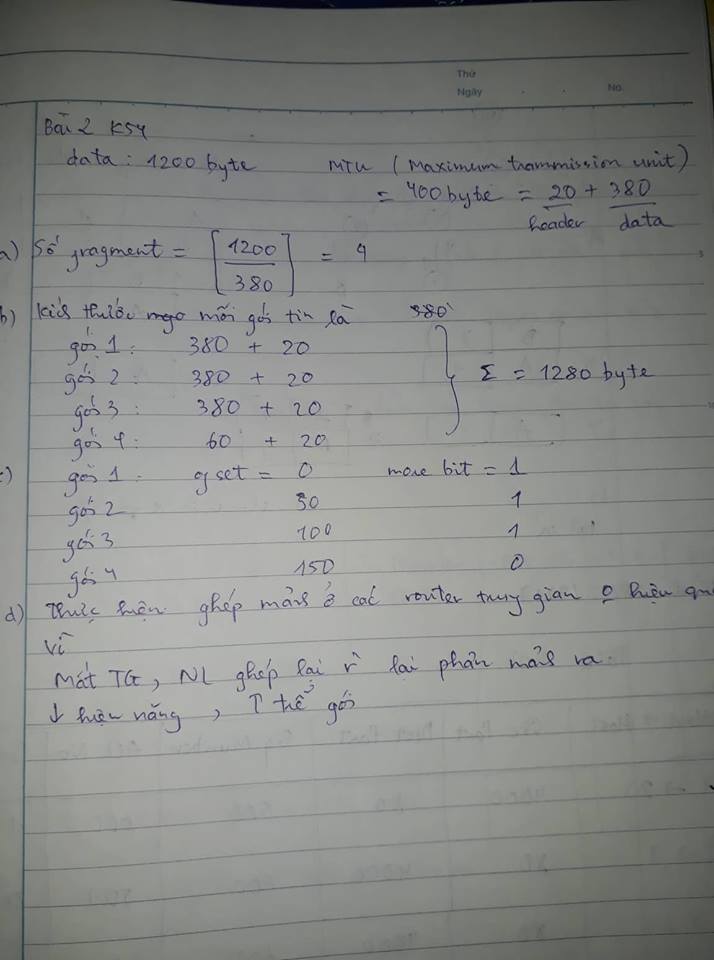 Thứ
Ngày No.
Bài 2 K54
data : 1200 byte MTU (Maximum transmission unit)
= 400 byte = 20 + 380
header data
a) Số fragment = [1200/380] = 4
b) Kích thước mỗi gói tin là 380
gói 1 : 380 + 20
gói 2 : 380 + 20 Σ = 1280 byte
gói 3 : 380 + 20
gói 4 : 60 + 20
c) gói 1 : offset = 0 more bit = 1
gói 2 50 1
gói 3 100 1
gói 4 150 0
d) Thực hiện ghép mảnh ở các router trung gian o hiệu
Vì
Mất TG, NL ghép lại r lại phân mảnh ra.
↓ hiệu năng, ↑ trễ gói